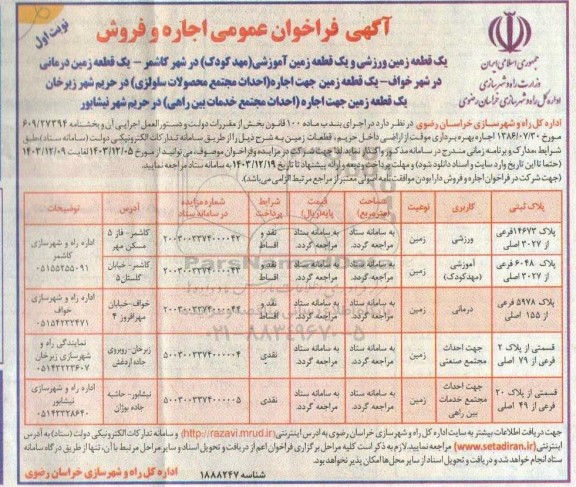 آگهی فراخوان عمومی اجاره و فروش
نوبت اول
جمهوری اسلامی ایران
وزارت راه و شهرسازی
اداره کل راه و شهرسازی خراسان رضوی
یک قطعه زمین ورزشی و یک قطعه زمین آموزشی (مهد کودک) در شهر کاشمر - یک قطعه زمین درمانی
در شهر خواف - یک قطعه زمین جهت اجاره (احداث مجتمع محصولات سلولزی) در حریم شهر زبرخان
یک قطعه زمین جهت اجاره (احداث مجتمع خدمات بین راهی) در حریم شهر نیشابور
اداره کل راه و شهرسازی خراسان رضوی در نظر دارد در اجرای بند ب ماده ۱۰۰ قانون بخش از مقررات دولت و دستورالعمل اجرایی آن و بخشنامه ۶۰۹/۲۷۳۹۴
مورخ ۱۳۸۶/۰۷/۳۰ اجاره بهره برداری موقت از اراضی داخل حریم، قطعات زمین به شرح ذیل را از طریق سامانه تدارکات الکترونیکی دولت (سامانه ستاد) طبق
شرایط مدارک و برنامه زمانی مندرج در سامانه مذکور واگذار نماید لذا جهت شرکت در مزایده و فراخوان موصوف، می توانید از مورخ ۱۴۰۳/۱۲/۰۵ لغایت ۱۴۰۳/۱۲/۰۹
(حتما تا این تاریخ وارد سایت و اسناد دانلود شود) و مهلت پرداخت ودیعه و ارائه پیشنهاد تا تاریخ ۱۴۰۳/۱۲/۱۹ به سامانه ستاد مراجعه نمایید.
(جهت شرکت در فراخوان اجاره و فروش دارا بودن موافقت نامه اصولی معتبر از مراجع مرتبط الزامی می باشد).
پلاک ثبتی کاربری نوعیت مساحت (متر مربع) قیمت پایه (ریال) شرایط پرداخت شماره مزایده در سامانه ستاد آدرس توضیحات
پلاک ۱۴۶۷۳ فرعی از ۳۰۲۷ اصلی ورزشی زمین به سامانه ستاد مراجعه گردد. به سامانه ستاد مراجعه گردد. نقد و اقساط ۲۰۰۳۰۰۳۳۷۴۰۰۰۰۴۲ کاشمر- فاز ۵ مسکن مهر اداره راه و شهرسازی کاشمر ۰۵۱۵۵۲۵۵۰۹۱
پلاک ۶۰۴۸ فرعی از ۳۰۲۷ اصلی آموزشی (مهدکودک) زمین به سامانه ستاد مراجعه گردد. به سامانه ستاد مراجعه گردد. نقد و اقساط کاشمر- خیابان گلستان ۵
پلاک ۵۹۷۸ فرعی از ۱۵۵ اصلی درمانی زمین به سامانه ستاد مراجعه گردد. به سامانه ستاد مراجعه گردد. نقد و اقساط خواف-خیابان مهرافروز ۴ اداره راه و شهرسازی خواف ۰۵۱۵۴۲۲۲۴۷۱
قسمتی از پلاک ۲ فرعی از ۷۹ اصلی جهت احداث مجتمع صنعتی زمین به سامانه ستاد مراجعه گردد. به سامانه ستاد مراجعه گردد. نقدی ۵۰۰۳۰۰۳۳۷۴۰۰۰۰۰۴ زبرخان-روبروی جاده اردغش نمایندگی راه و شهرسازی زبرخان ۰۵۱۴۳۲۲۳۶۰۷
قسمتی از پلاک ۲۰ فرعی از ۴۹ اصلی جهت احداث مجتمع خدمات بین راهی زمین به سامانه ستاد مراجعه گردد. به سامانه ستاد مراجعه گردد. نقدی ۵۰۰۳۰۰۳۳۷۴۰۰۰۰۰۵ نیشابور- حاشیه جاده بوژان اداره راه و شهرسازی نیشابور ۰۵۱۴۳۳۲۸۶۴۰
ParsNamadData
۰۲۱-۸۸۳۴۹۶۷۰-۵
جهت دریافت اطلاعات بیشتر به سایت اداره کل راه و شهرسازی خراسان رضوی به آدرس اینترنتی (http://razavi.mrud.ir) و سامانه تدارکات الکترونیکی دولت (ستاد) به آدرس
اینترنتی (www.setadiran.ir) مراجعه نمایید. لازم به ذکر است کلیه مراحل برگزاری فراخوان اعم از دریافت و تحویل اسناد و سایر مراحل مرتبط با آن، تنها از طریق درگاه سامانه
ستاد انجام خواهد شد و دریافت و تحویل اسناد از سایر محل ها امکان پذیر نخواهد بود.
شناسه ۱۸۸۸۲۴۷
اداره کل راه و شهرسازی خراسان رضوی